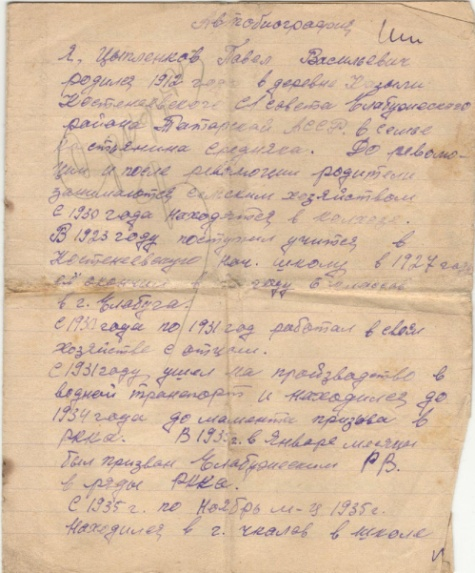 Автобиография
Я, Цыпленков Павел Васильевич
родился 1912 года в деревне
Костенеевского с/совета Елабужского
района Татарской АССР. в семье
крестьянина середняка. До револю-
ции и после революции родители
занимаются сельским хозяйством
С 1930 года находятся в колхозе.
В 1923 году поступил учится в
Костенеевскую нач. школу в 1927 году
году 6 классов
в г. Елабуга.
года по 1931 год работал в своём
хозяйстве с отцом.
С 1931 году ушел на производство в
водной транспорт и находился до
1934 года до момента призыва в
РККА. В 1935г. в Январе месяце
был призван Елабужским РВ.
в ряды РККА.
С 1935 г. по Ноябрь м-ц 1935г.
находился в г. Чкалов в школе